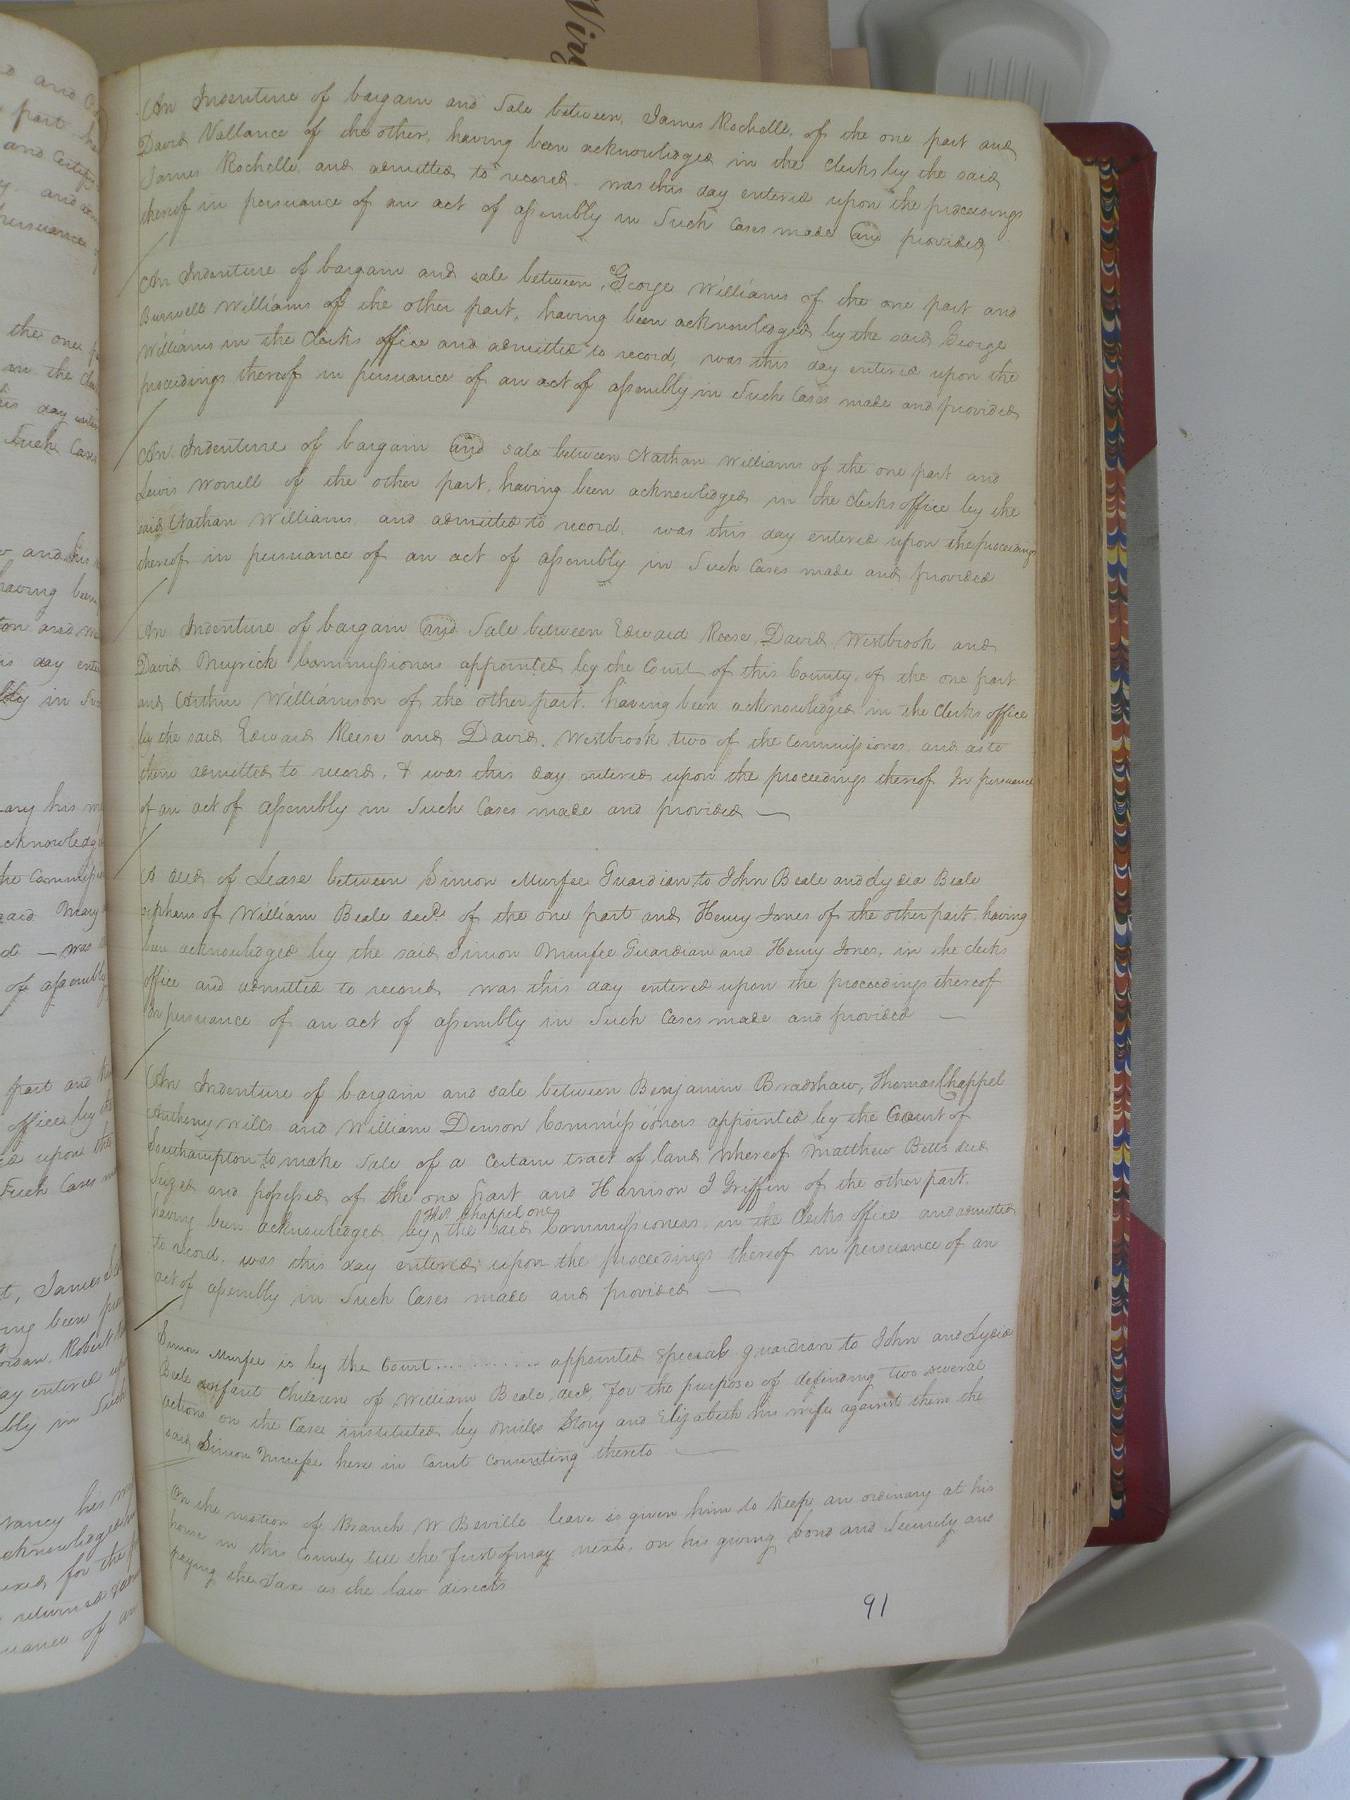 Virg
An Indenture of bargain and Sale between, James Rochelle, of the one part and
David Vallance of the other, having been acknowledged in the clerks by the said
James Rochelle and admitted to record. was this day entered upon the proceedings
thereof in persuance of an act of assembly in Such Cases made and provided
An Indenture of bargain and sale between, George Williams of the one part and
Burwell Williams of the other part, having been acknowledged by the said George
Williams in the Clerks office and admitted to record, was this day entered upon the
proceedings thereof in persuance of an act of assembly in Such Cases made and provided
An Indenture of bargain and sale between Nathan Williams of the one part and
Lewis Worrell of the other part, having been acknowledged in the clerks office by the
said Nathan Williams and admitted to record, was this day entered upon the proceedings
thereof in persuance of an act of assembly in Such Cases made and provided
An Indenture of bargain and Sale between Edward Reese, David Westbrook and
David Myrick Commissioners appointed by the Court of this County, of the one part
and Arthur Williamson of the other part. having been acknowledged in the Clerks office
by the said Edward Reese and David, Westbrook two of the Commissioners and as to
them admitted to record, & was this day entered upon the proceedings thereof In persuance
of an act of assembly in Such Cases made and provided —
A deed of Lease between Simon Murfee Guardian to John Beale and Lydia Beale
orphans of William Beale decd of the one part and Henry Jones of the other part having
been acknowledged by the said Simon Murfee Guardian and Henry Jones, in the clerks
office and admitted to record was this day entered upon the proceedings thereof
In persuance of an act of assembly in Such Cases made and provided —
An Indenture of bargain and sale between Benjamin Bradshaw, Thomas Chappel
Anthony Wills and William Denson Commissioners appointed by the Court of
Southampton to make Sale of a Certain tract of land whereof Matthew Betts died
Siezed and possessed of the one part and Harrison J Griffin of the other part.
Thos. Chappel one
having been acknowledged by the said Commissioners in the Clerks office and admitted
to record, was this day entered upon the proceedings thereof in persuance of an
act of assembly in Such Cases made and provided —
Simon Murfee is by the Court ........... appointed special guardian to John and Lydia
Beale infant Children of William Beale decd for the purpose of defending two several
actions on the Case instituted by Miles Story and Elizabeth his wife against them the
said Simon Murfee here in Court Consenting thereto —
On the motion of Branch W Beville leave is given him to keep an ordinary at his
house in this County till the first of may next, on his giving bond and Security and
paying the Tax as the law directs
91